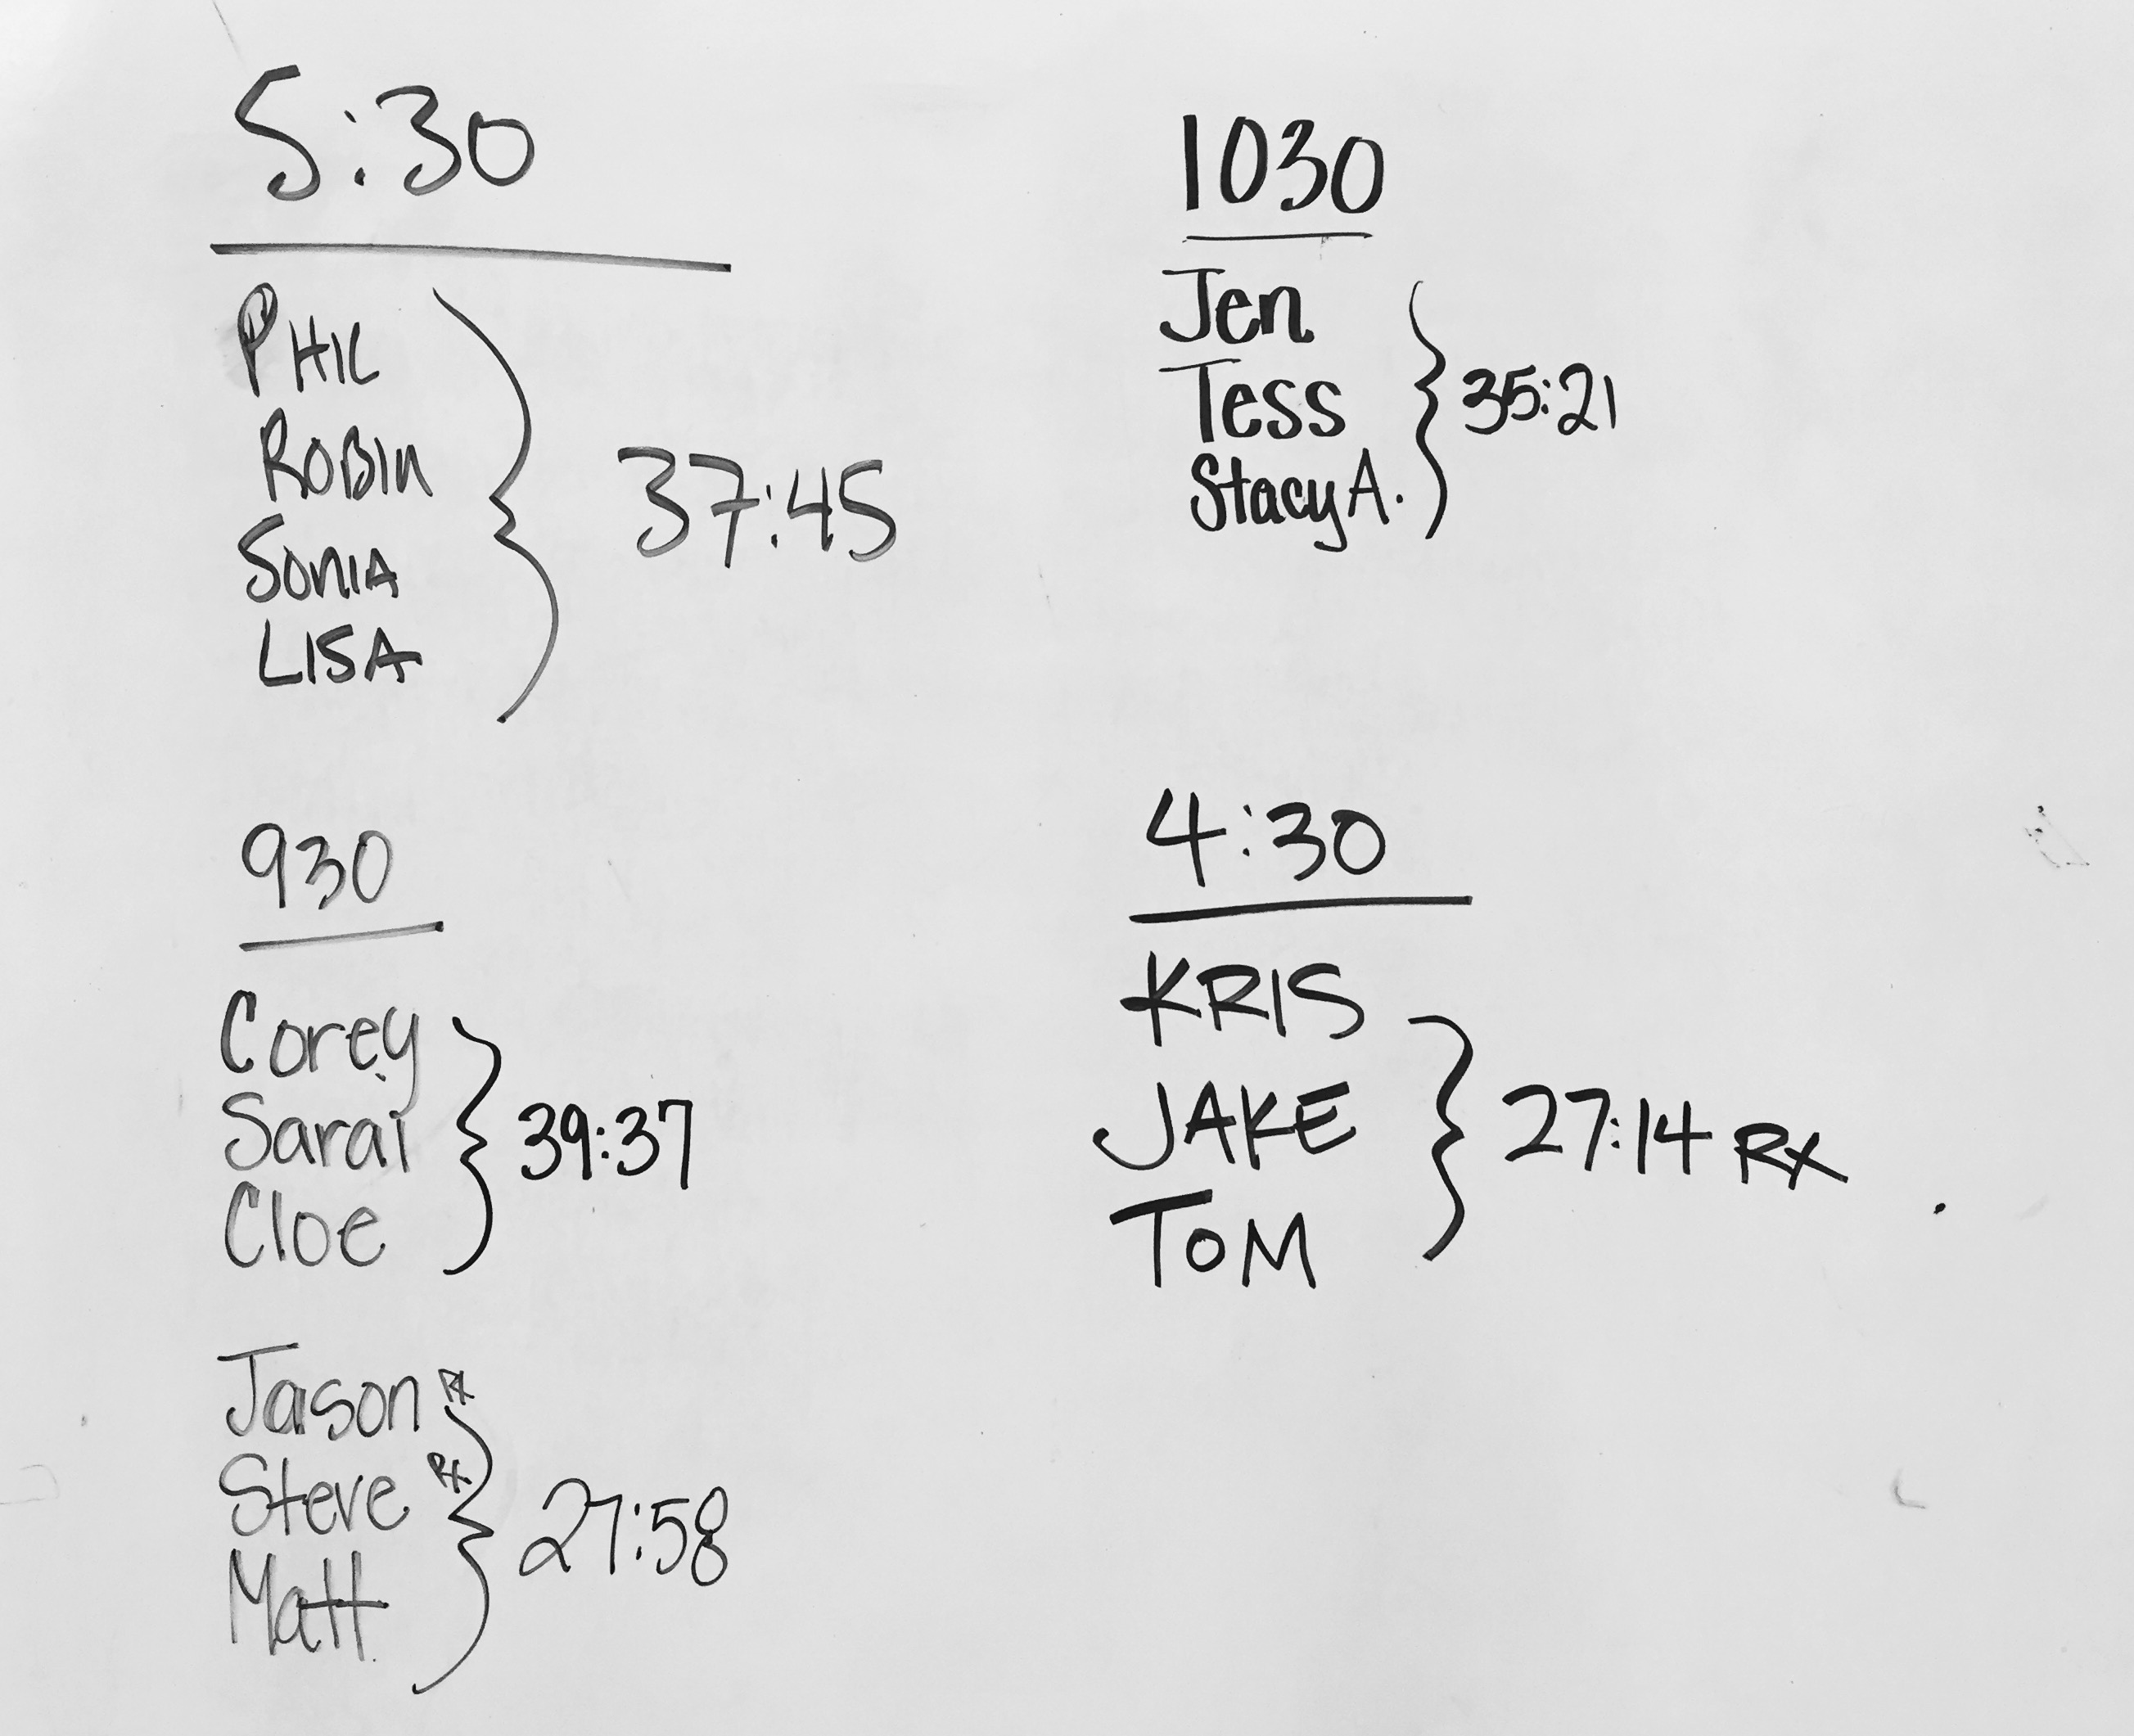 5:30
PHIL
ROBIN
SONIA
LISA
37:45
930
Corey
Sarai
Cloe
39:37
Jason Rx
Steve Rx
Matt
27:58
1030
Jen
Tess
Stacy A.
35:21
4:30
KRIS
JAKE
TOM
27:14 RX